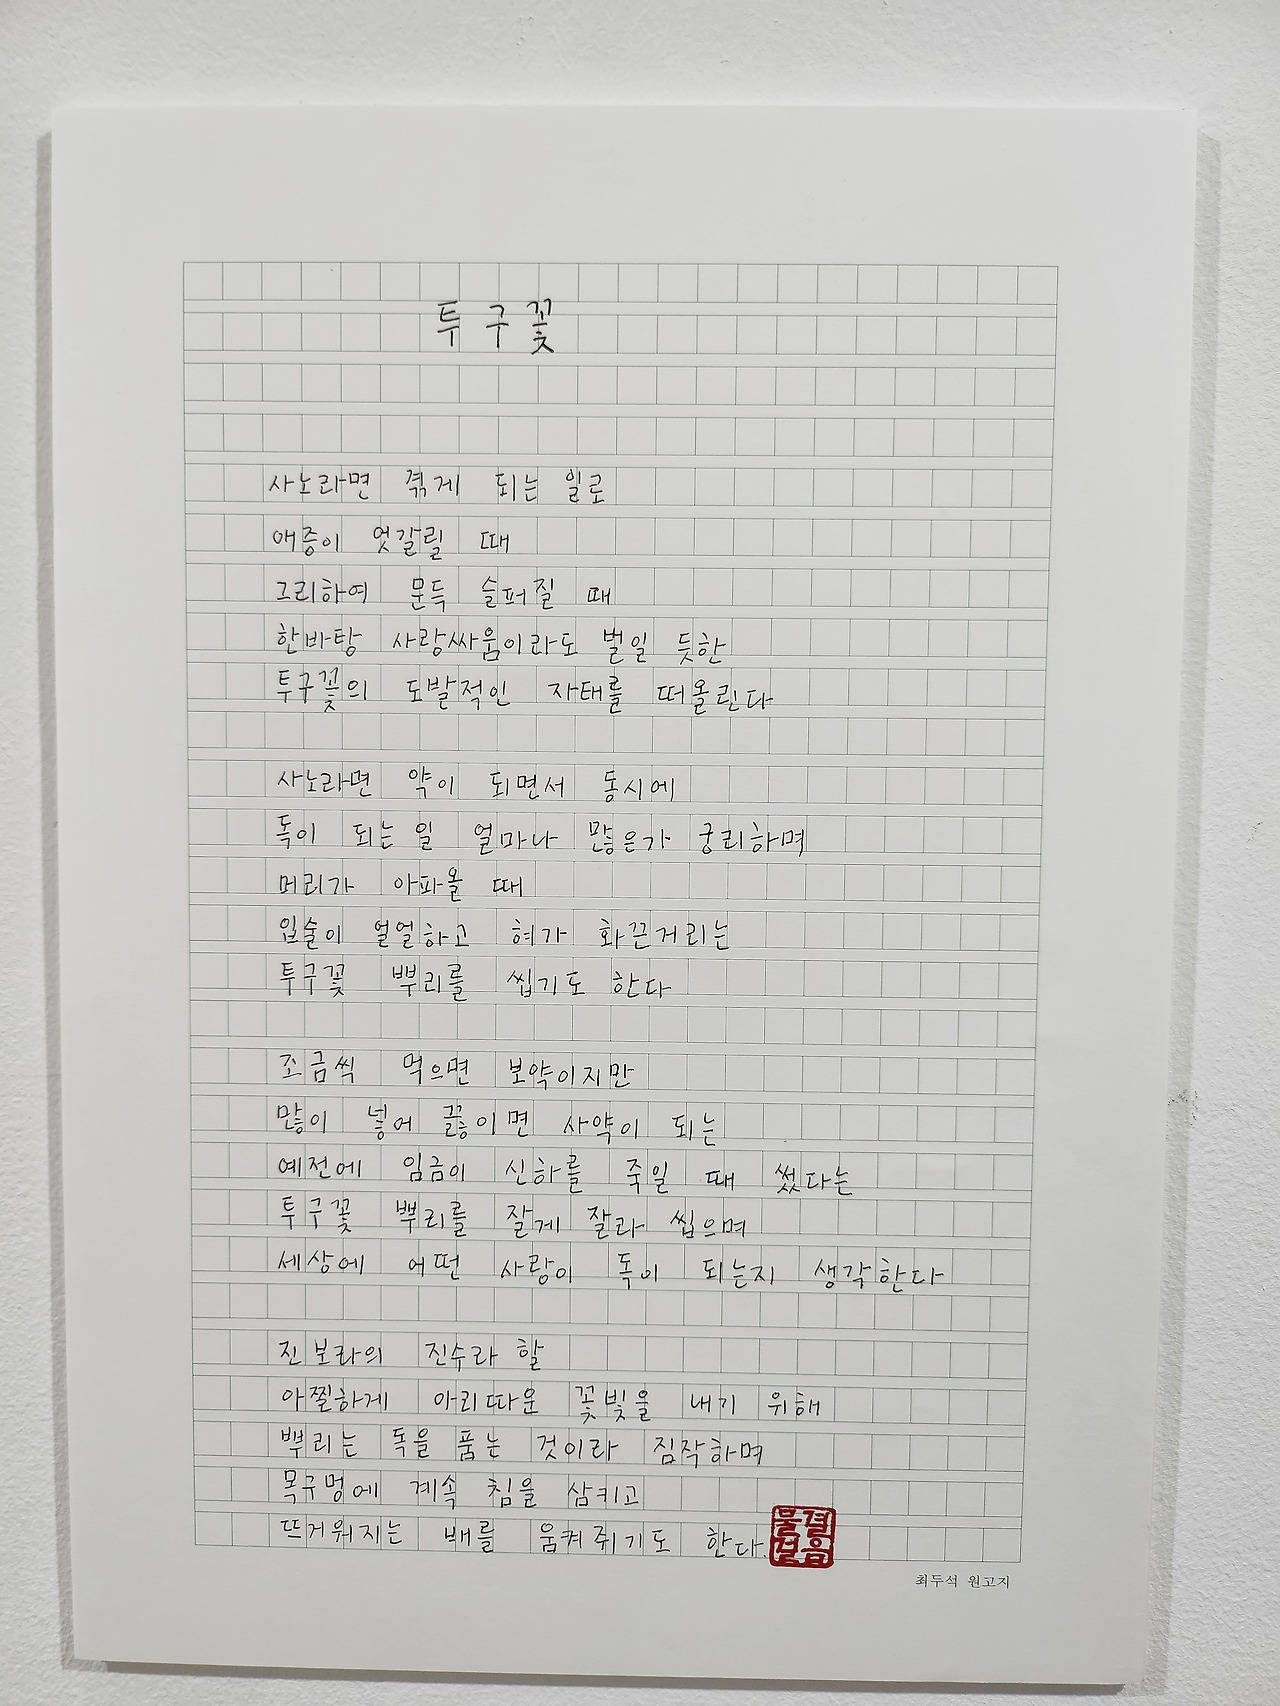 투구꽃
사노라면 겪게 되는 일로
애증이 엇갈릴 때
그리하여 문득 슬퍼질 때
한바탕 사랑싸움이라도 벌일 듯한
투구꽃의 도발적인 자태를 떠올린다
사노라면 약이 되면서 동시에
독이 되는 일 얼마나 많은가 궁리하며
머리가 아파올 때
입술이 얼얼하고 혀가 화끈거리는
투구꽃 뿌리를 씹기도 한다
조금씩 먹으면 보약이지만
많이 넣어 끓이면 사약이 되는
예전에 임금이 신하를 죽일 때 썼다는
투구꽃 뿌리를 잘게 잘라 씹으며
세상에 어떤 사랑이 독이 되는지 생각한다
진보라의 진수라 할
아찔하게 아리따운 꽃빛을 내기 위해
뿌리는 독을 품는 것이라 짐작하며
목구멍에 계속 침을 삼키고
뜨거워지는 배를 움켜쥐기도 한다.
물결
걸음
최두석 원고지